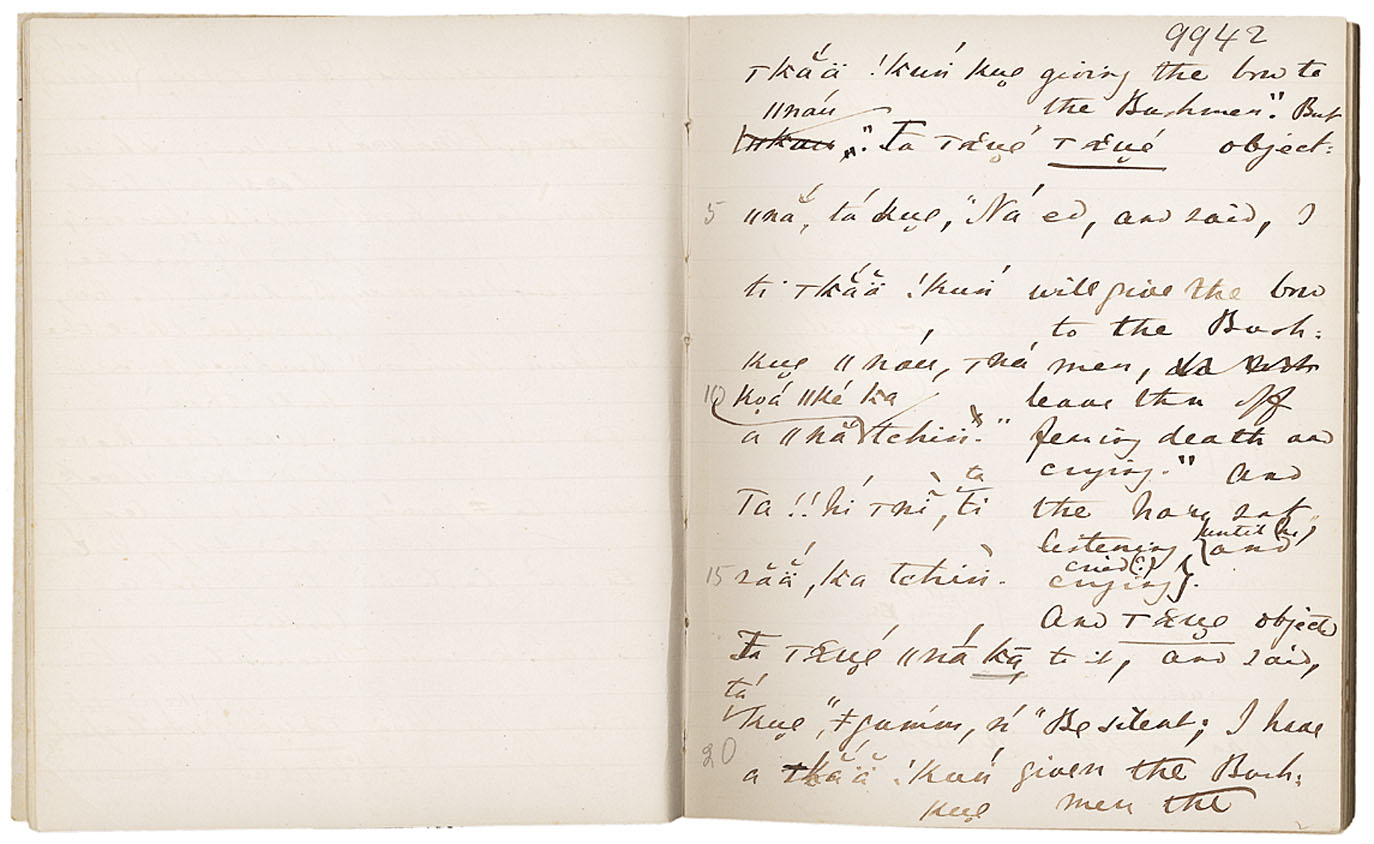 9942
τkắä !kuń kuẹ giving the bow to
ǁnáu the Bushmen." But
Ta τǽuẹ́ τǽuẹ́ object:
5 ǁnắ, tá kuẹ, "Ná ed, and said, I
ti τkắä̆ !kuń will give the bow
to the Bush:
kuẹ ǁnáu, τná men,
10 kọá ǁké ka leave them off
a ǁnă tchiń." fearing death and
crying." And
ta
Ta !!hí τnì, ti the hare sat
listening, (until he)
and
cried (?)
15 săä́, ka tchiǹ. crying).
And τǽuẹ objected
Ta τǽuẹ́ ǁná ka, to it, and said,
tá
kuẹ, "ǂgumm, ń "Be silent; I have
20 a τkắä̆ !kuń given the Bush:
kuẹ men the